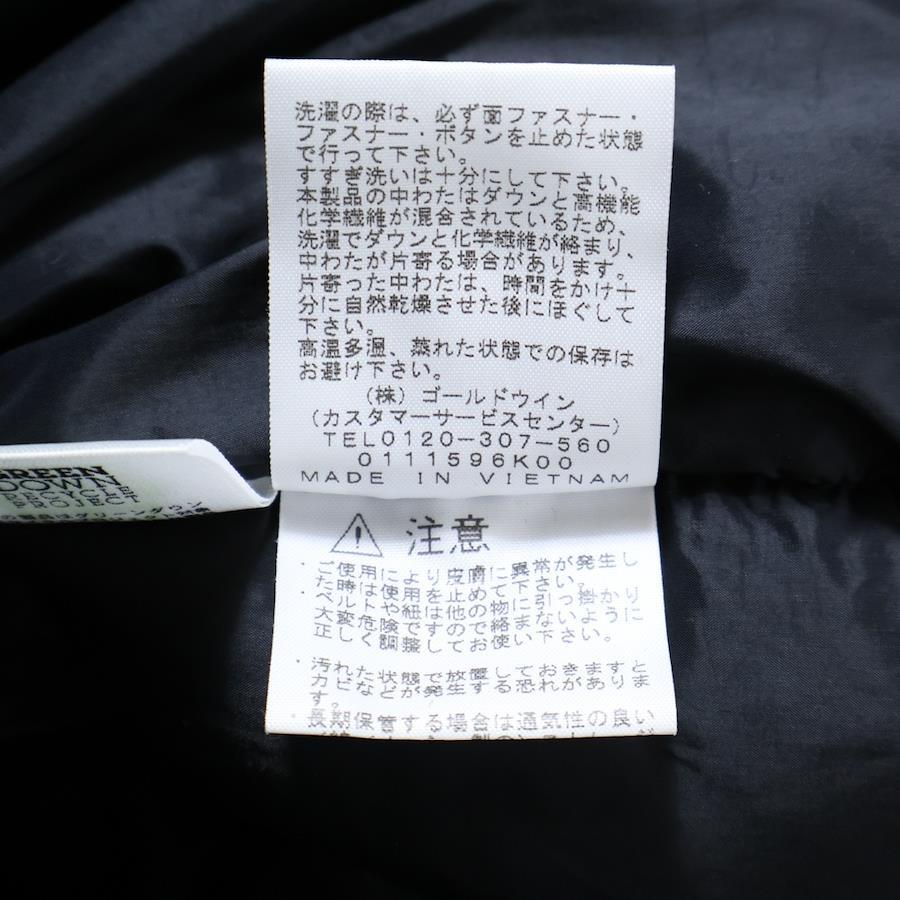 洗濯の際は、必ず面ファスナー・
ファスナー・ボタンを止めた状態
で行って下さい。
すすぎ洗いは十分にして下さい。
本製品の中わたはダウンと高機能
化学繊維が混合されているため、
洗濯でダウンと化学繊維が絡まり、
中わたが片寄る場合があります。
片寄った中わたは、時間をかけ十
分に自然乾燥させた後にほぐして
下さい。
高温多湿、蒸れた状態での保存は
お避け下さい。
(株)ゴールドウイン
(カスタマーサービスセンター)
TEL0120-307-560
0111596K00
MADE IN VIETNAM
GREEN
DOWN
注意
・ご使用により皮膚に異常が発生し
た時は使用を止めて下さい。
・ベルトや紐は他の物に引っ掛かり
大変危険ですので絡まないように
正しく調整してお使い下さい。
・汚れた状態で放置しておきますと
カビなどが発生する恐れがありま
す。
・長期保管する場合は通気性の良い